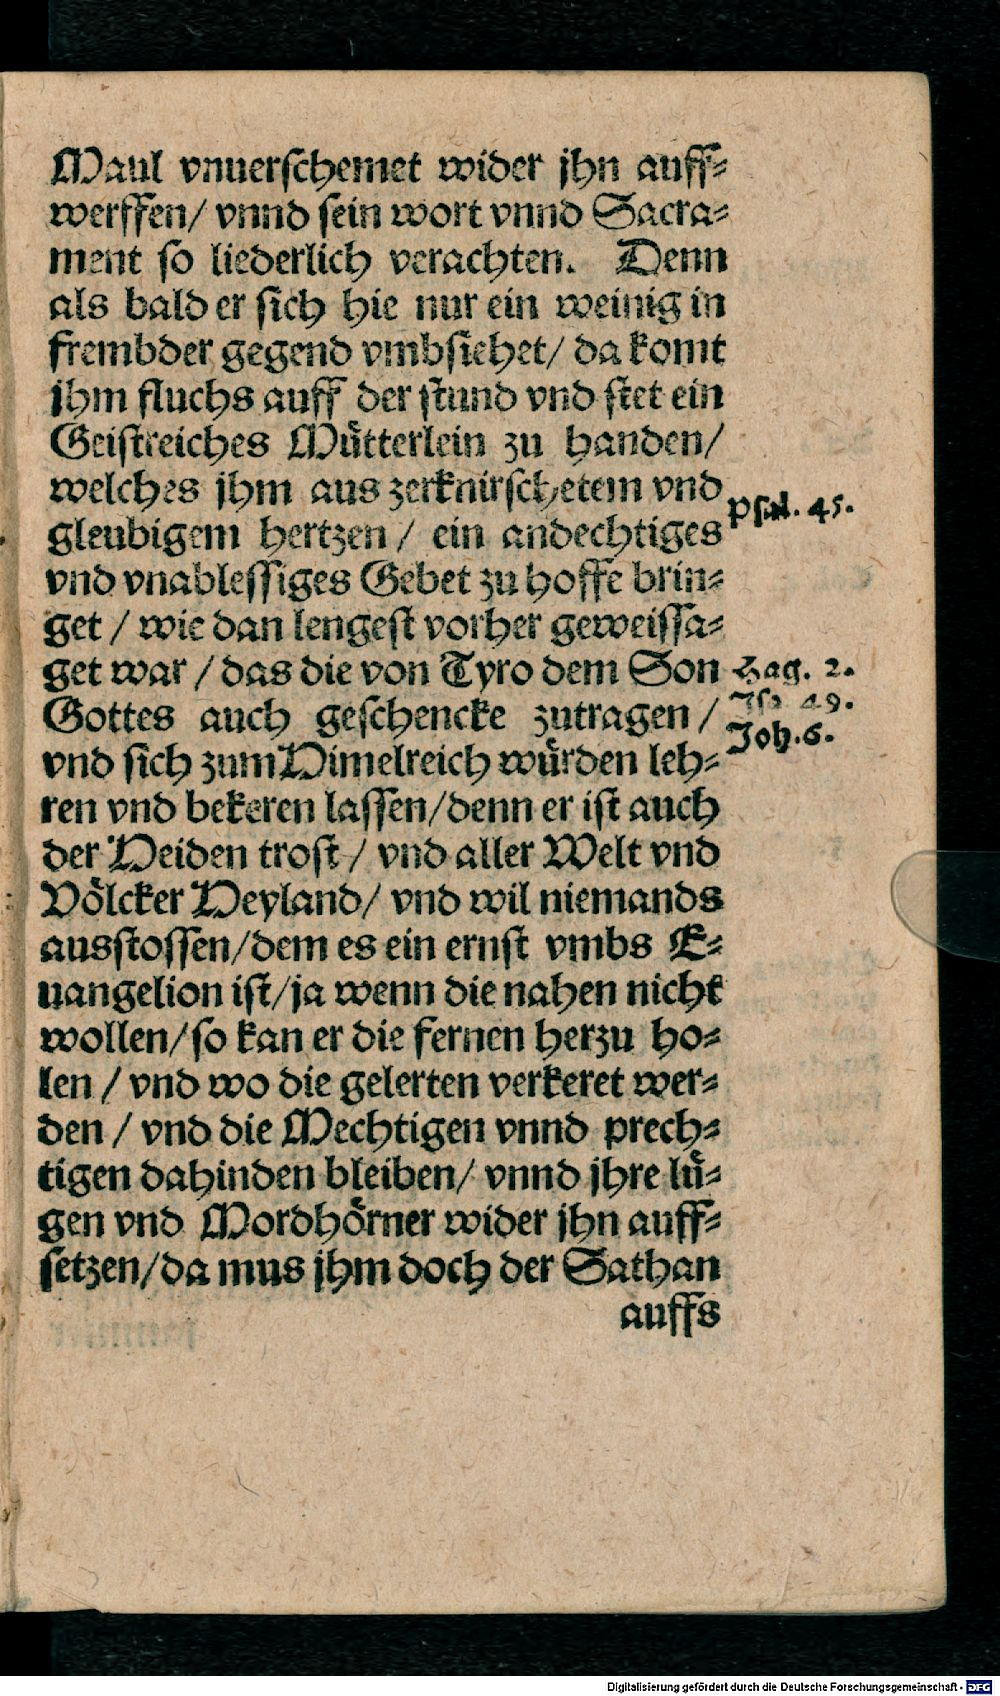 Maul vnuerschemet wider jhn auff⸗
werffen/ vnnd sein wort vnnd Sacra⸗
ment so liederlich verachten. Denn
als bald er sich hie nur ein weinig in
frembder gegend vmbsiehet/ da komt
ihm fluchs auff der stund vnd stet ein
Geistreiches Mütterlein zu handen/
welches jhm aus zerknirschetem vnd
gleubigem hertzen / ein andechtiges
vnd vnablessiges Gebet zu hoffe brin⸗
get / wie dan lengest vorher geweissa⸗
get war / das die von Tyro dem Son
Gottes auch geschencke zutragen /
vnd sich zum Himelreich würden leh⸗
ren vnd bekeren lassen/denn er ist auch
der Heiden trost / vnd aller Welt vnd
Völcker Heyland/ vnd wil niemands
ausstossen/dem es ein ernst vmbs E⸗
uangelion ist/ja wenn die nahen nicht
wollen/so kan er die fernen herzu ho⸗
len / vnd wo die gelerten verkeret wer⸗
den / vnd die Mechtigen vnnd prech⸗
tigen dahinden bleiben/ vnnd jhre lü⸗
gen vnd Mordhörner wider jhn auff⸗
setzen/da mus jhm doch der Sathan
auffs
Psal. 45.
Hag. 2.
Isa 49.
Joh.6.
Digitalisierung gefördert durch die Deutsche Forschungsgemeinschaft - DFG